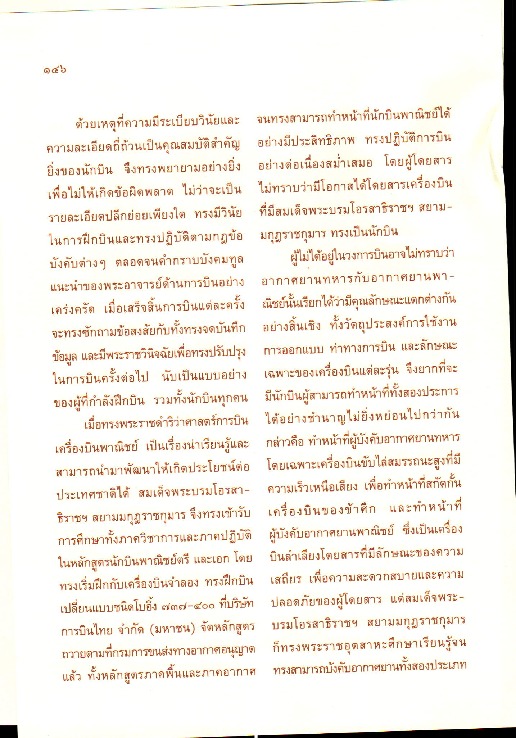 ๑๔๖
ด้วยเหตุที่ความมีระเบียบวินัยและ
ความละเอียดถี่ถ้วนเป็นคุณสมบัติสำคัญ
ยิ่งของนักบิน จึงทรงพยายามอย่างยิ่ง
เพื่อไม่ให้เกิดข้อผิดพลาด ไม่ว่าจะเป็น
รายละเอียดปลีกย่อยเพียงใด ทรงมีวินัย
ในการฝึกบินและทรงปฏิบัติตามกฎข้อ
บังคับต่างๆ ตลอดจนคำกราบบังคมทูล
แนะนำของพระอาจารย์ด้านการบินอย่าง
เคร่งครัด เมื่อเสร็จสิ้นการบินแต่ละครั้ง
จะทรงซักถามข้อสงสัยกับทั้งทรงจดบันทึก
ข้อมูล และมีพระราชวินิจฉัยเพื่อทรงปรับปรุง
ในการบินครั้งต่อไป นับเป็นแบบอย่าง
ของผู้ที่กำลังฝึกบิน รวมทั้งนักบินทุกคน
เมื่อทรงพระราชดำริว่าศาสตร์การบิน
เครื่องบินพาณิชย์ เป็นเรื่องน่าเรียนรู้และ
สามารถนำมาพัฒนาให้เกิดประโยชน์ต่อ
ประเทศชาติได้ สมเด็จพระบรมโอรสา-
ธิราชฯ สยามมกุฎราชกุมาร จึงทรงเข้ารับ
การศึกษาทั้งภาควิชาการและภาคปฏิบัติ
ในหลักสูตรนักบินพาณิชย์ตรี และเอก โดย
ทรงเริ่มฝึกกับเครื่องบินจำลอง ทรงฝึกบิน
เปลี่ยนแบบชนิดโบอิ้ง ๗๓๗-๔๐๐ ที่บริษัท
การบินไทย จำกัด (มหาชน) จัดหลักสูตร
ถวายตามที่กรมการขนส่งทางอากาศอนุญาต
แล้ว ทั้งหลักสูตรภาคพื้นและภาคอากาศ
จนทรงสามารถทำหน้าที่นักบินพาณิชย์ได้
อย่างมีประสิทธิภาพ ทรงปฏิบัติการบิน
อย่างต่อเนื่องสม่ำเสมอ โดยผู้โดยสาร
ไม่ทราบว่ามีโอกาสได้โดยสารเครื่องบิน
ที่มีสมเด็จพระบรมโอรสาธิราชฯ สยาม-
มกุฎราชกุมาร ทรงเป็นนักบิน
ผู้ไม่ได้อยู่ในวงการบินอาจไม่ทราบว่า
อากาศยานทหารกับอากาศยานพา-
ณิชย์นั้นเรียกได้ว่ามีคุณลักษณะแตกต่างกัน
อย่างสิ้นเชิง ทั้งวัตถุประสงค์การใช้งาน
การออกแบบ ท่าทางการบิน และลักษณะ
เฉพาะของเครื่องบินแต่ละรุ่น จึงยากที่จะ
มีนักบินผู้สามารถทำหน้าที่ทั้งสองประการ
ได้อย่างชำนาญไม่ยิ่งหย่อนไปกว่ากัน
กล่าวคือ ทำหน้าที่ผู้บังคับอากาศยานทหาร
โดยเฉพาะเครื่องบินขับไล่สมรรถนะสูงที่มี
ความเร็วเหนือเสียง เพื่อทำหน้าที่สกัดกั้น
เครื่องบินของข้าศึก และทำหน้าที่
ผู้บังคับอากาศยานพาณิชย์ ซึ่งเป็นเครื่อง
บินลำเลียงโดยสารที่มีลักษณะของความ
เสถียร เพื่อความสะดวกสบายและความ
ปลอดภัยของผู้โดยสาร แต่สมเด็จพระ-
บรมโอรสาธิราชฯ สยามมกุฎราชกุมาร
ก็ทรงพระราชอุตสาหะศึกษาเรียนรู้จน
ทรงสามารถบังคับอากาศยานทั้งสองประเภท